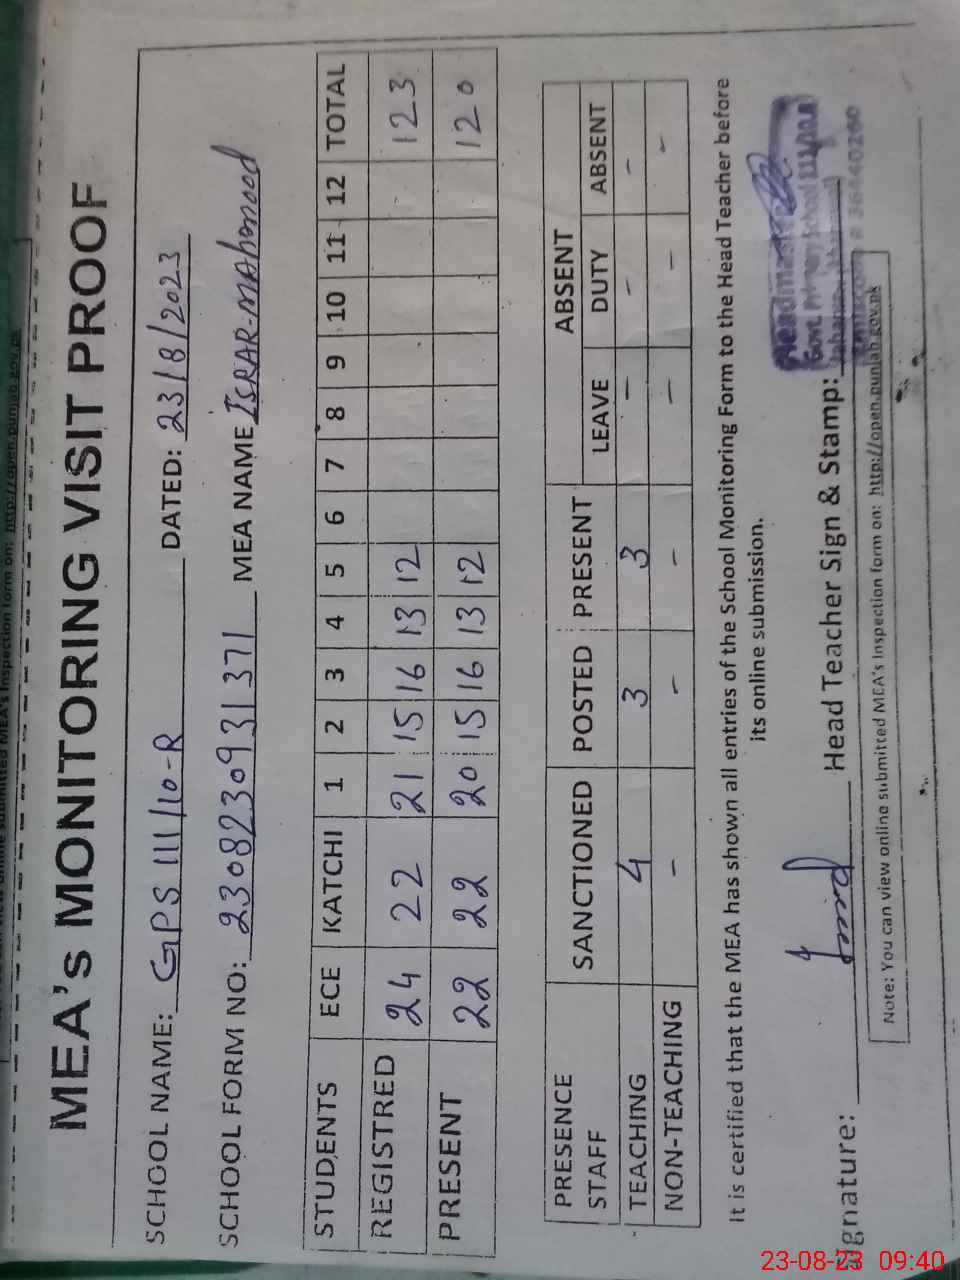 MEA's MONITORING VISIT PROOF
SCHOOL NAME: GPS 111/10-R DATED: 23/8/2023
SCHOOL FORM NO: 2308230931371 MEA NAME ISRAR-MAhmood
STUDENTS ECE KATCHI 1 2 3 4 5 6 7 8 9 10 11 12 TOTAL
REGISTRED 24 22 21 15 16 13 12 123
PRESENT 22 22 20 15 16 13 12 120
PRESENCE STAFF SANCTIONED POSTED PRESENT ABSENT
LEAVE DUTY ABSENT
TEACHING 4 3 3 - - -
NON-TEACHING - - - - - -
It is certified that the MEA has shown all entries of the School Monitoring Form to the Head Teacher before
its online submission.
Signature: Head Teacher Sign & Stamp:
Headmaster
Govt. Primary School 111/10.R
# 36440260
Note: You can view online submitted MEA's Inspection form on: http://open.punjab.gov.pk
23-08-23 09:40